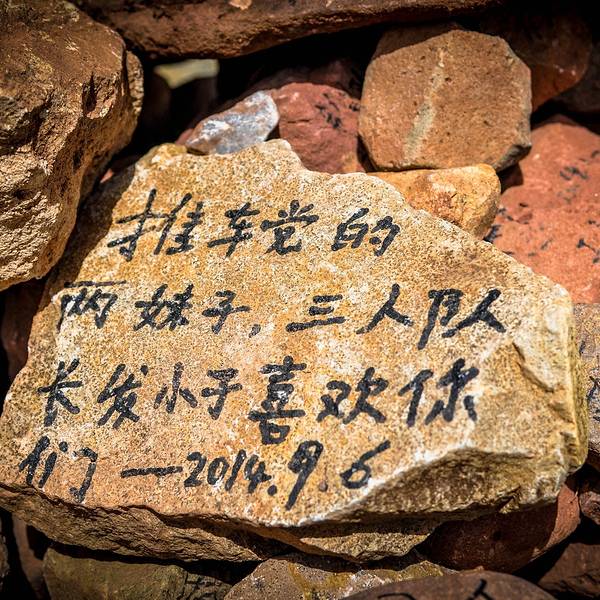 推车党的
两妹子,三人队
长发小于喜欢你
们—2014.9.6